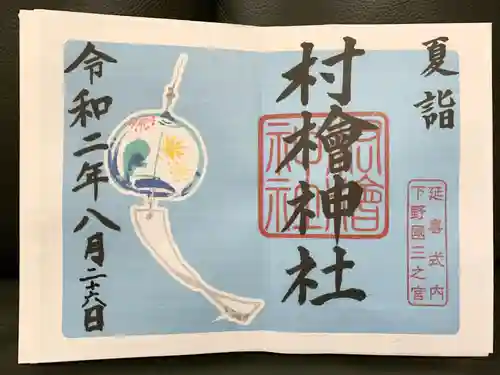 夏詣
延喜式内
下野國三之宮
村檜神社
村檜神社
令和二年八月二十六日